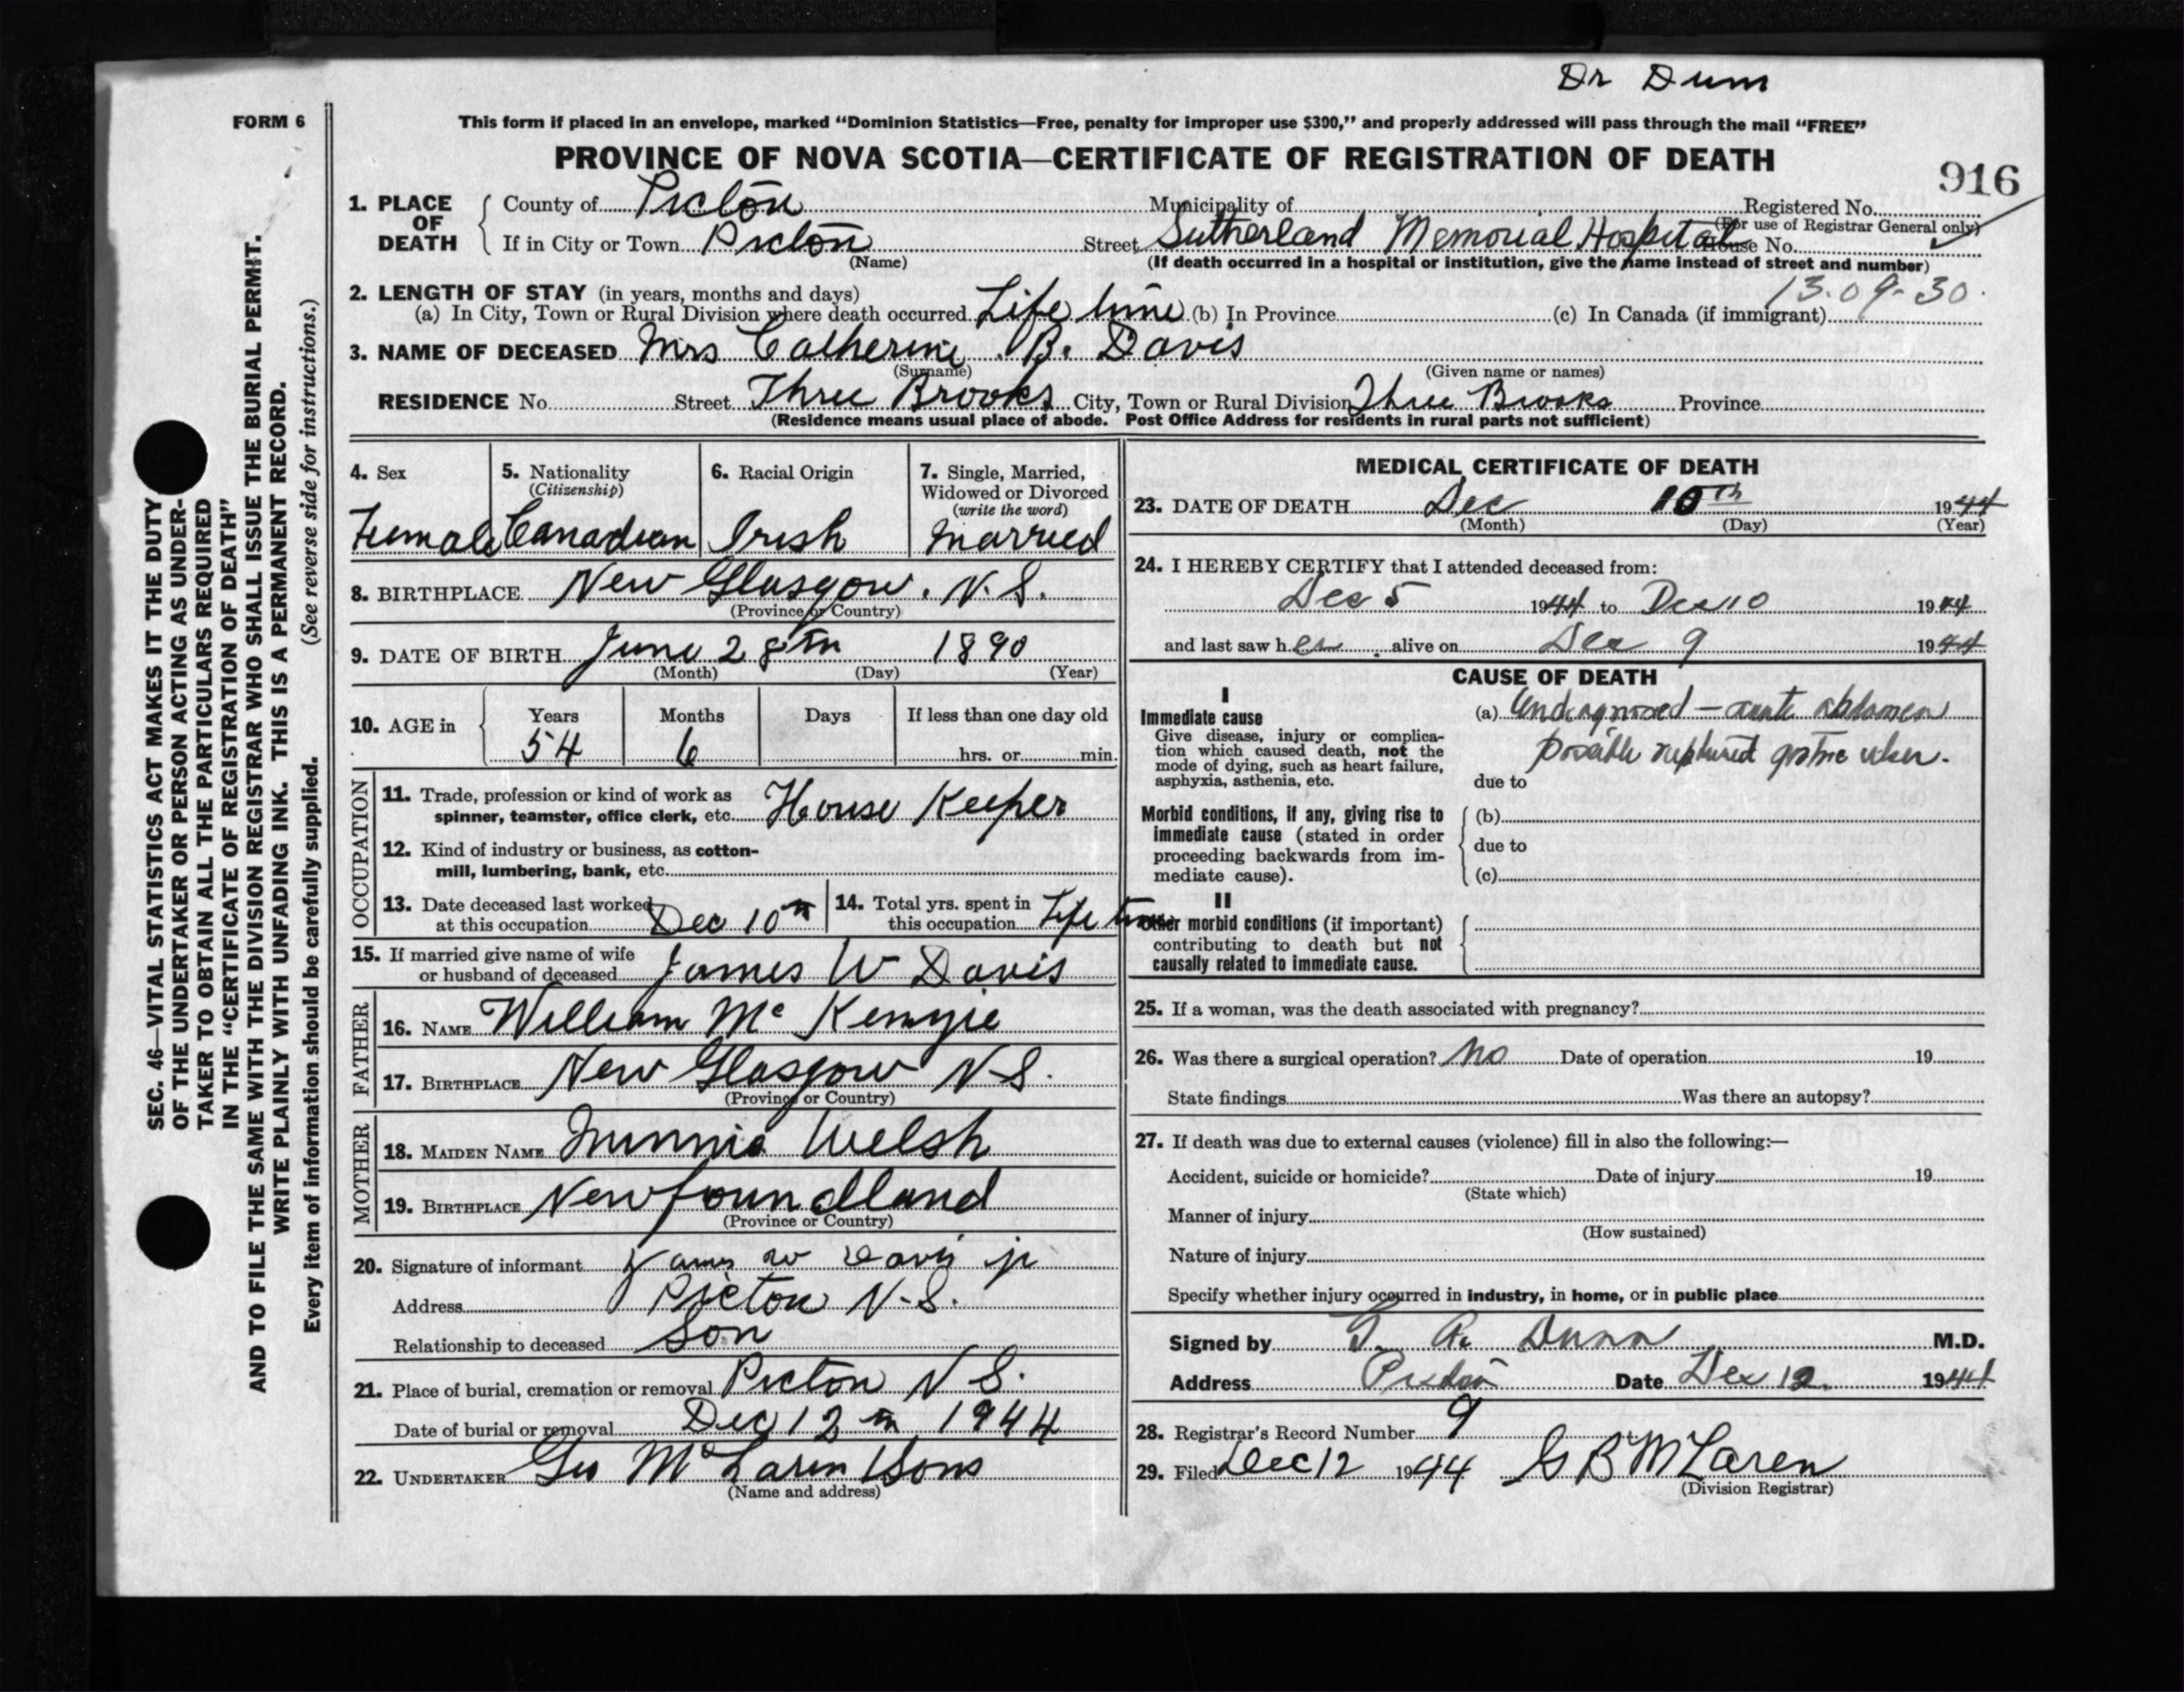 Dr Dunn
FORM 6
This form if placed in an envelope, marked “Dominion Statistics—Free, penalty for improper use $300,” and properly addressed will pass through the mail “FREE”
PROVINCE OF NOVA SCOTIA—CERTIFICATE OF REGISTRATION OF DEATH
916
1. PLACE OF DEATH
County of Pictou Municipality of Registered No.
(For use of Registrar General only)
If in City or Town Pictou Street Sutherland Memorial Hospital House No.
(Name) (If death occurred in a hospital or institution, give the name instead of street and number)
2. LENGTH OF STAY (in years, months and days) 13.09-30.
(a) In City, Town or Rural Division where death occurred Life time (b) In Province (c) In Canada (if immigrant)
3. NAME OF DECEASED Mrs Catherine. B. Davis
(Surname) (Given name or names)
RESIDENCE No. Street Three Brooks City, Town or Rural Division Three Brooks Province
(Residence means usual place of abode. Post Office Address for residents in rural parts not sufficient)
4. Sex
Female
5. Nationality
(Citizenship)
Canadian
6. Racial Origin
Irish
7. Single, Married,
Widowed or Divorced
(write the word)
Married
8. BIRTHPLACE New Glasgow. N.S.
(Province or Country)
9. DATE OF BIRTH June 28th 1890
(Month) (Day) (Year)
10. AGE in
Years Months Days If less than one day old
54 6 hrs. or min.
OCCUPATION
11. Trade, profession or kind of work as
spinner, teamster, office clerk, etc. House Keeper
12. Kind of industry or business, as cotton-
mill, lumbering, bank, etc.
13. Date deceased last worked
at this occupation Dec 10th
14. Total yrs. spent in
this occupation Life time
15. If married give name of wife
or husband of deceased James W Davis
FATHER
16. NAME William Mc Kenzie
17. BIRTHPLACE New Glasgow N-S.
(Province or Country)
MOTHER
18. MAIDEN NAME Welsh
19. BIRTHPLACE Newfoundland
(Province or Country)
20. Signature of informant James W Davis jr
Address Pictou N-S.
Relationship to deceased Son
21. Place of burial, cremation or removal Pictou N S.
Date of burial or removal Dec 12th 1944
22. UNDERTAKER Geo McLaren & Sons
(Name and address)
MEDICAL CERTIFICATE OF DEATH
23. DATE OF DEATH Dec 10th 1944
(Month) (Day) (Year)
24. I HEREBY CERTIFY that I attended deceased from:
Dec 5 1944 to Dec 10 1944
and last saw her alive on Dec 9 1944
CAUSE OF DEATH
I
Immediate cause
Give disease, injury or complica-
tion which caused death, not the
mode of dying, such as heart failure,
asphyxia, asthenia, etc.
(a) Undiagnosed - acute abdomen
possible ruptured gastric ulcer.
due to
Morbid conditions, if any, giving rise to
immediate cause (stated in order
proceeding backwards from im-
mediate cause).
(b)
due to
(c)
II
Other morbid conditions (if important)
contributing to death but not
causally related to immediate cause.
25. If a woman, was the death associated with pregnancy?
26. Was there a surgical operation? No Date of operation 19
State findings Was there an autopsy?
27. If death was due to external causes (violence) fill in also the following:—
Accident, suicide or homicide? Date of injury 19
(State which)
Manner of injury
(How sustained)
Nature of injury
Specify whether injury occurred in industry, in home, or in public place
Signed by G. A. Dunn M.D.
Address Pictou Date Dec 12 1944
28. Registrar's Record Number 9
29. Filed Dec 12 1944 G B McLaren
(Division Registrar)
SEC. 46—VITAL STATISTICS ACT MAKES IT THE DUTY
OF THE UNDERTAKER OR PERSON ACTING AS UNDER-
TAKER TO OBTAIN ALL THE PARTICULARS REQUIRED
IN THE “CERTIFICATE OF REGISTRATION OF DEATH”
AND TO FILE THE SAME WITH THE DIVISION REGISTRAR WHO SHALL ISSUE THE BURIAL PERMIT.
WRITE PLAINLY WITH UNFADING INK. THIS IS A PERMANENT RECORD.
Every item of information should be carefully supplied. (See reverse side for instructions.)